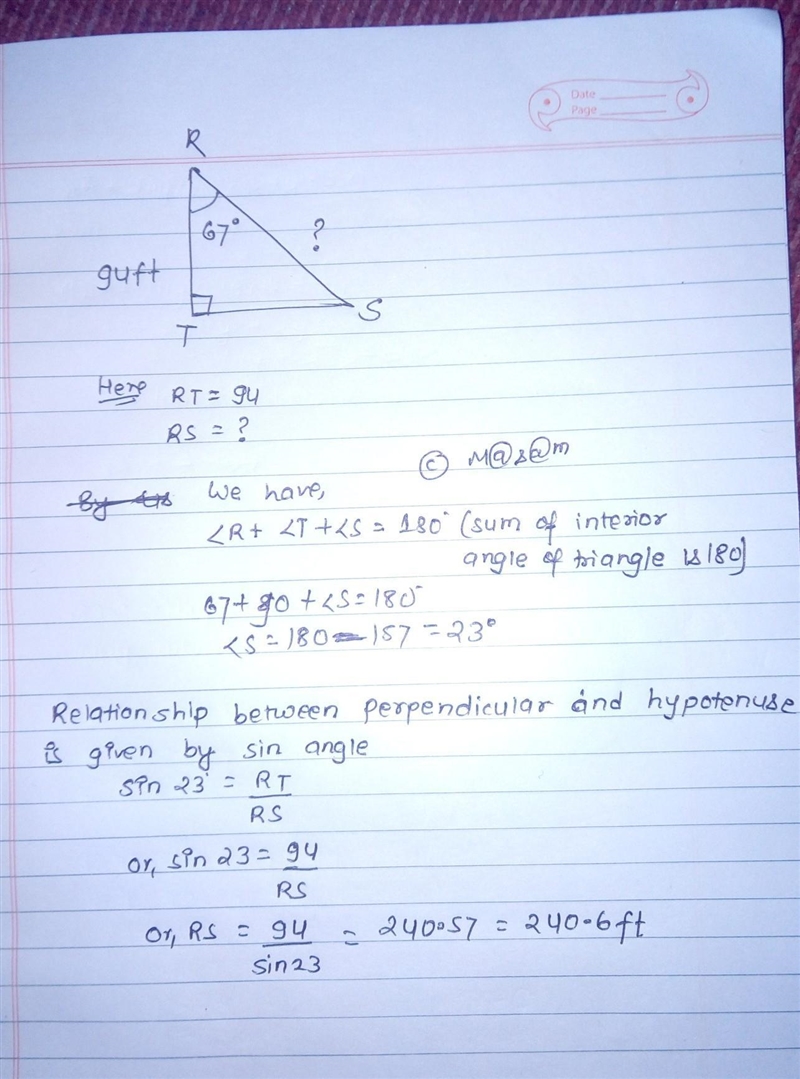 Date
Page
R
67°
?
94ft
T
S
Here RT = 94
RS = ?
© M@s@m
By We have,
∠R + ∠T + ∠S = 180° (sum of interior
angle of triangle is 180)
67 + 90 + ∠S = 180°
∠S = 180 - 157 = 23°
Relationship between perpendicular and hypotenuse
is given by sin angle
sin 23° = RT
RS
or, sin 23 = 94
RS
or, RS = 94 = 240.57 = 240.6 ft
sin 23